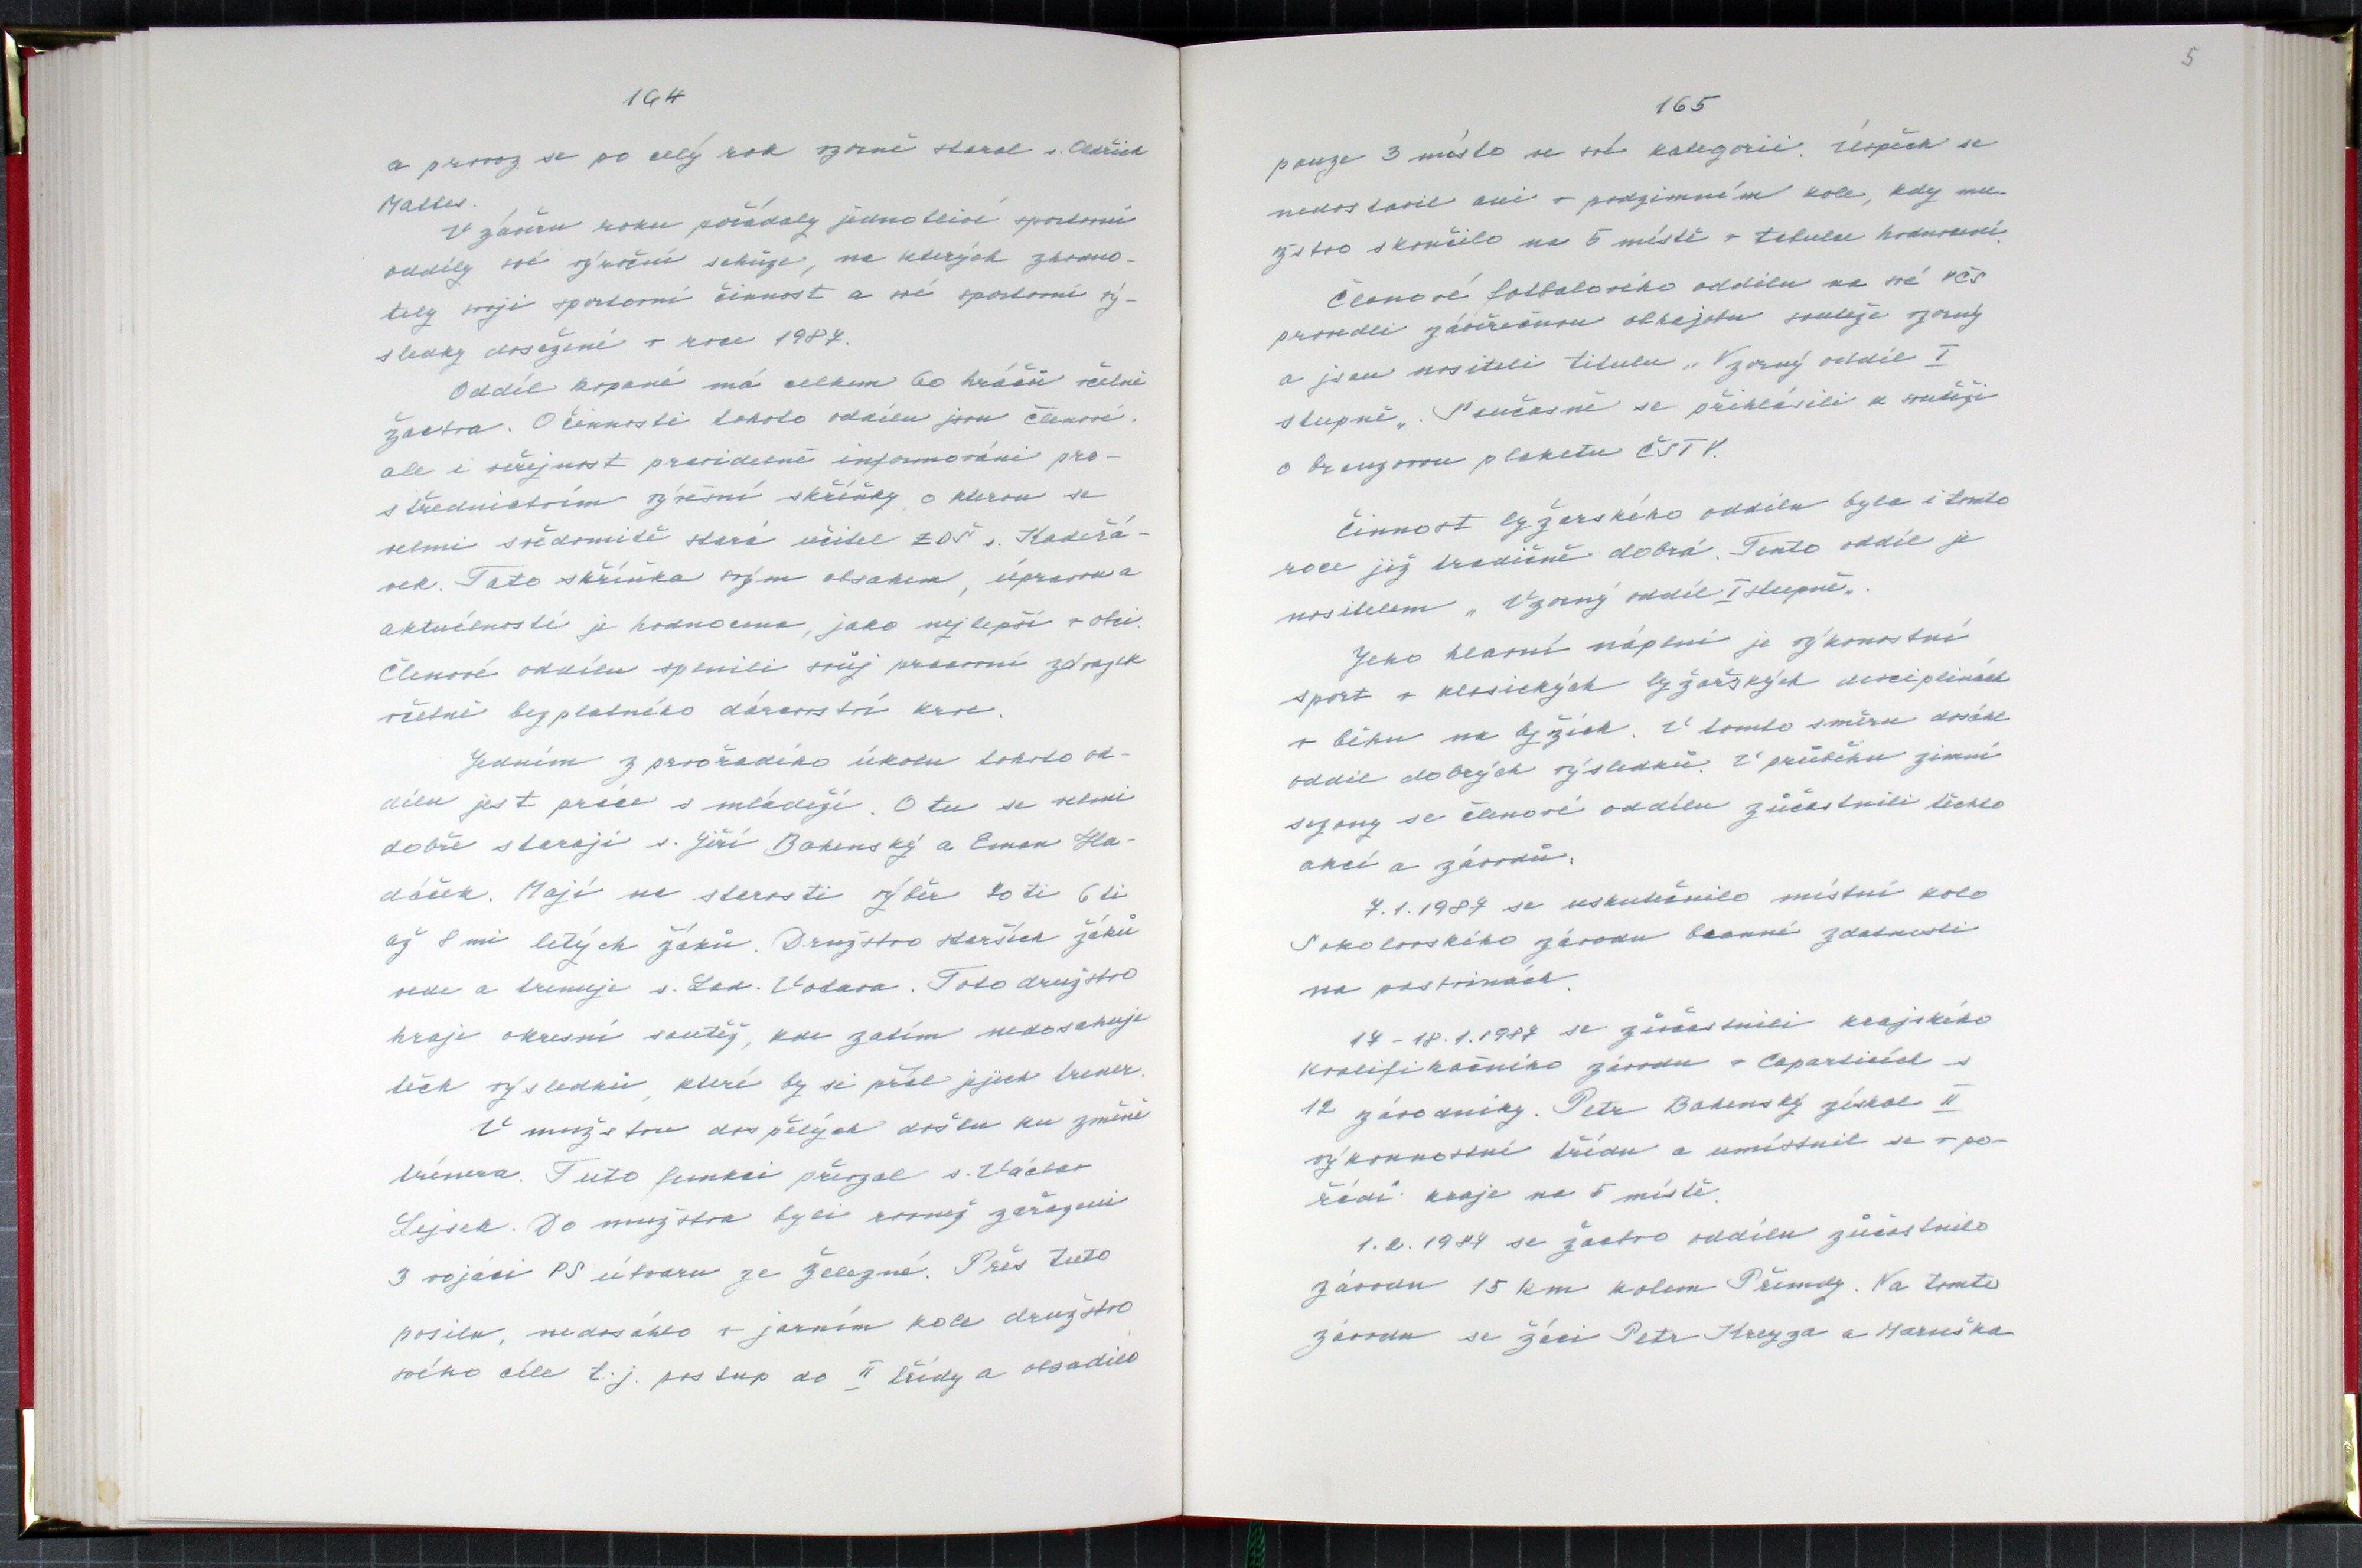 164
a provoz se po celý rok vzorně staral s. Oldřich
Malles.
V závěru roku pořádaly jednotlivé sportovní
oddíly své výroční schůze, na kterých zhodno-
tily svoji sportovní činnost a své sportovní vý-
sledky dosažené v roce 1987.
Oddíl kopané má celkem 60 hráčů včetně
žactva. O činnosti tohoto oddílu jsou členové.
ale i veřejnost pravidelně informováni pro-
střednictvím vývěsní skříňky, o kterou se
velmi svědomitě stará učitel ZDŠ s. Kadeřá-
vek. Tato skříňka svým obsahem, úpravou a
aktuálností je hodnocena, jako nejlepší v obci.
Členové oddílu splnili svůj pracovní závazek
včetně bezplatného dárcovství krve.
Jedním z prvořadého úkolu tohoto od-
dílu jest práce s mládeží. O tu se velmi
dobře starají s. Jiří Bahenský a Eman Hla-
dáček. Mají na starosti výběr 20 ti 6 ti
až 8 mi letých žáků. Družstvo starších žáků
vede a trenuje s. Lad. Vodava. Toto družstvo
hraje okresní soutěž, kde zatím nedosahuje
těch výsledků, které by si přál jejich trener.
V mužstvu dospělých došlu ku změně
trénera. Tuto funkci převzal s. Václav
Lejsek. Do mužstva byli rovněž zařazeni
3 vojáci PS útvaru ze Železné. Přes tuto
posilu, nedosáhlo v jarním kole družstvo
svého cíle t.j. postup do II třídy a obsadilo
5
165
pouze 3 místo ve své kategorii. Úspěch se
nedostavil ani v podzimním kole, kdy mu-
žstvo skončilo na 5 místě v tabulce hodnocení.
Členové fotbalového oddílu na své VČS
provedli závěrečnou obhajobu soutěže vzorný
a jsou nositeli titulu „Vzorný oddíl I
stupně„. Současně se přihlásili k soutěži
o bronzovou plaketu ČSTV.
Činnost lyžarského oddílu byla i tomto
roce již tradičně dobrá. Tento oddíl je
nositelem „Vzorný oddíl I stupně„.
Jeho hlavní náplní je výkonostní
sport v klasických lyžařských disciplinách
v běhu na lyžích. V tomto směru dosáhl
oddíl dobrých výsledků. V průběhu zimní
sezony se členové oddílu zůčastnili těchto
akcí a závodů:
7.1.1987 se uskutečnilo místní kolo
Sokolovského závodu branné zdatnosti
na pastvinách.
17 - 18.1.1987 se zůčastnili krajského
kvalifikačního závodu v Caparticích s
12 závodníky. Petr Bahenský získal II
výkonnostní třídu a umístnil se v po-
řadí kraje na 5 místě.
1.2.1987 se žactvo oddílu zůčastnilo
závodu 15 km kolem Přimdy. Na tomto
závodu se žáci Petr Kreyza a Maruška